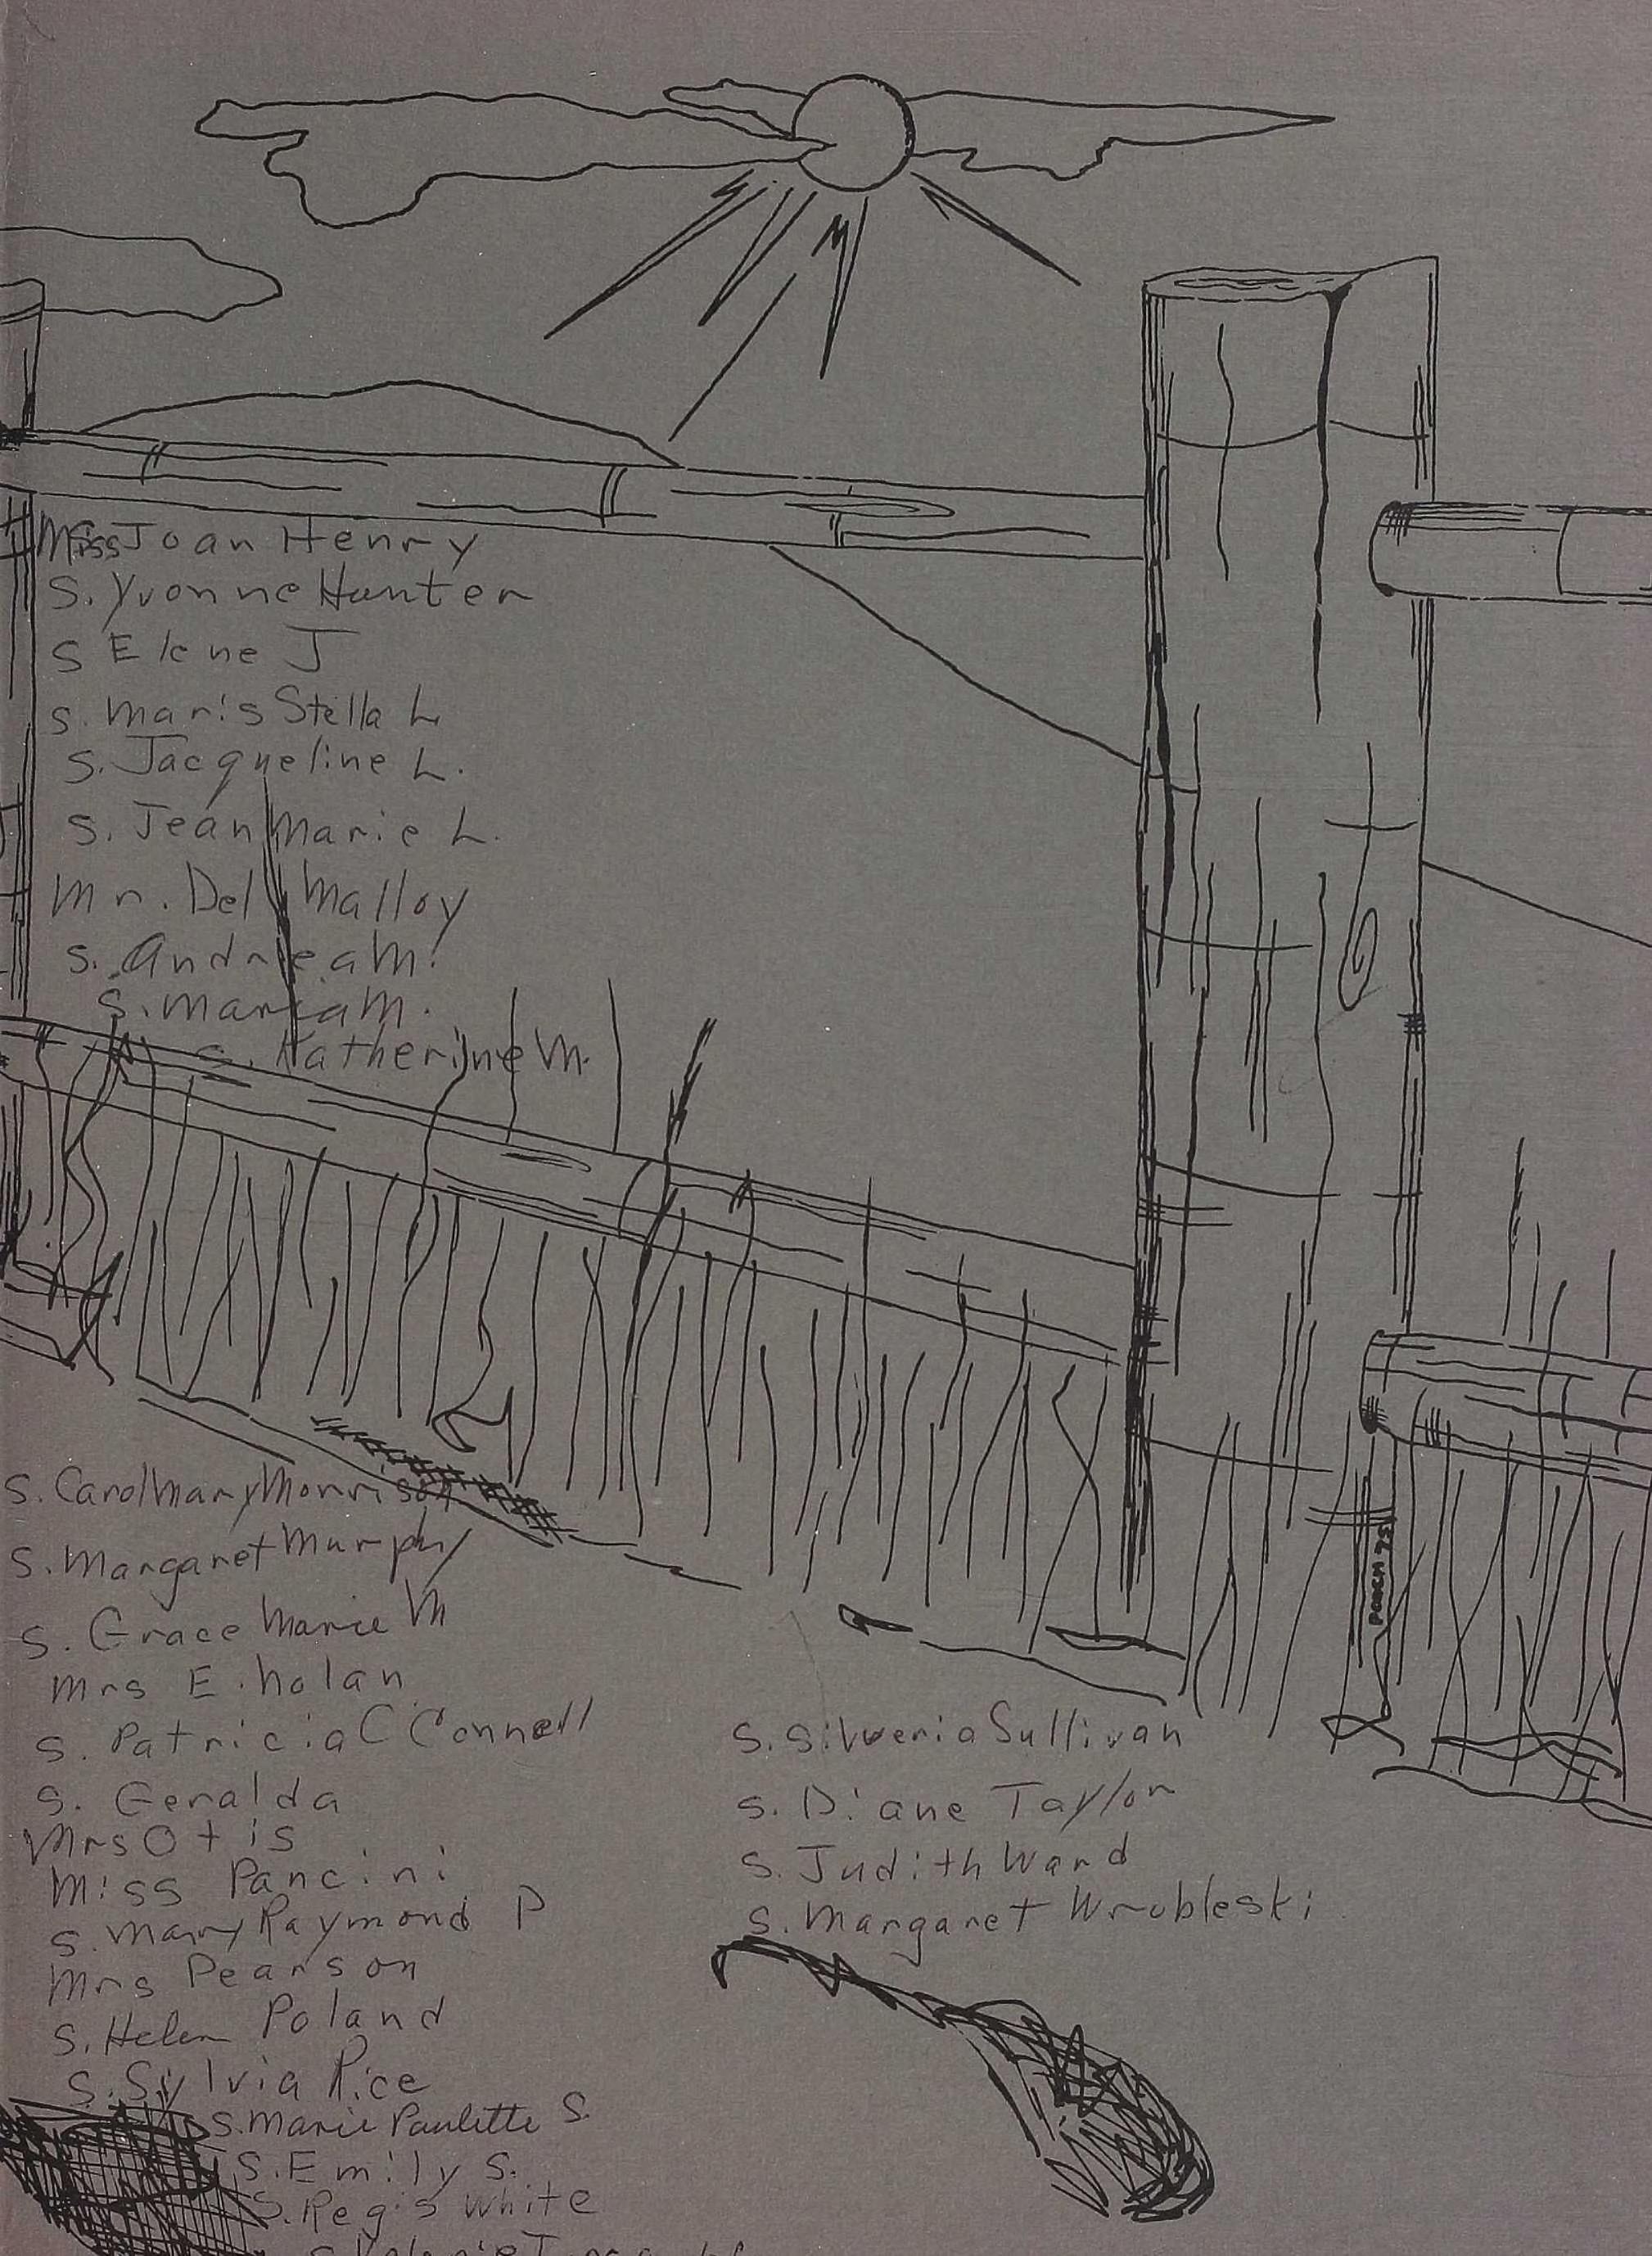 Miss Joan Henry
S. Yvonne Hunter
S Elene J
S. Maris Stella L
S. Jacqueline L.
S. Jean Marie L.
Mr. Del Malloy
S. Andrea M.
S. Maria M.
S. Katherine M.
S. Carol Mary Morrison
S. Margaret Murphy
S. Grace Marie M
Mrs E. Nolan
S. Patricia C Connell
S. Geralda
Mrs Otis
Miss Pancini
S. Mary Raymond P
Mrs Pearson
S. Helen Poland
S. Sylvia Rice
S. Marie Paulette S.
S. Emily S.
S. Regis White
S. Sullivan
S. Diane Taylor
S. Judith Ward
S. Margaret Wrobleski
75